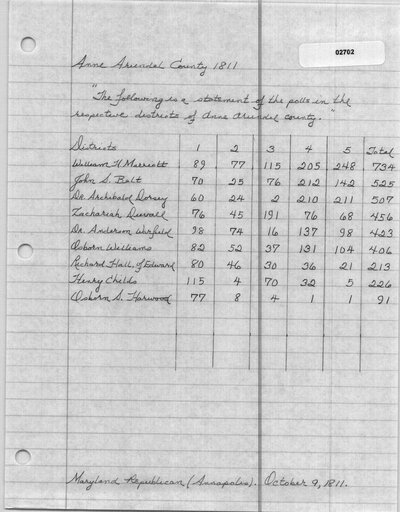 02702
Anne Arundel County 1811
"The following is a statement of the polls in the
respective districts of Anne Arundel County."
Districts 1 2 3 4 5 Total
William H Marriott 89 77 115 205 248 734
John S. Belt 70 25 76 212 142 525
Dr. Archibald Dorsey 60 24 2 210 211 507
Zachariah Duvall 76 45 191 76 68 456
Dr. Anderson Warfield 98 74 16 137 98 423
Osborn Williams 82 52 37 131 104 406
Richard Hall, of Edward 80 46 30 36 21 213
Henry Childs 115 4 70 32 5 226
Osborn S. Harwood 77 8 4 1 1 91
Maryland Republican (Annapolis). October 9, 1811.